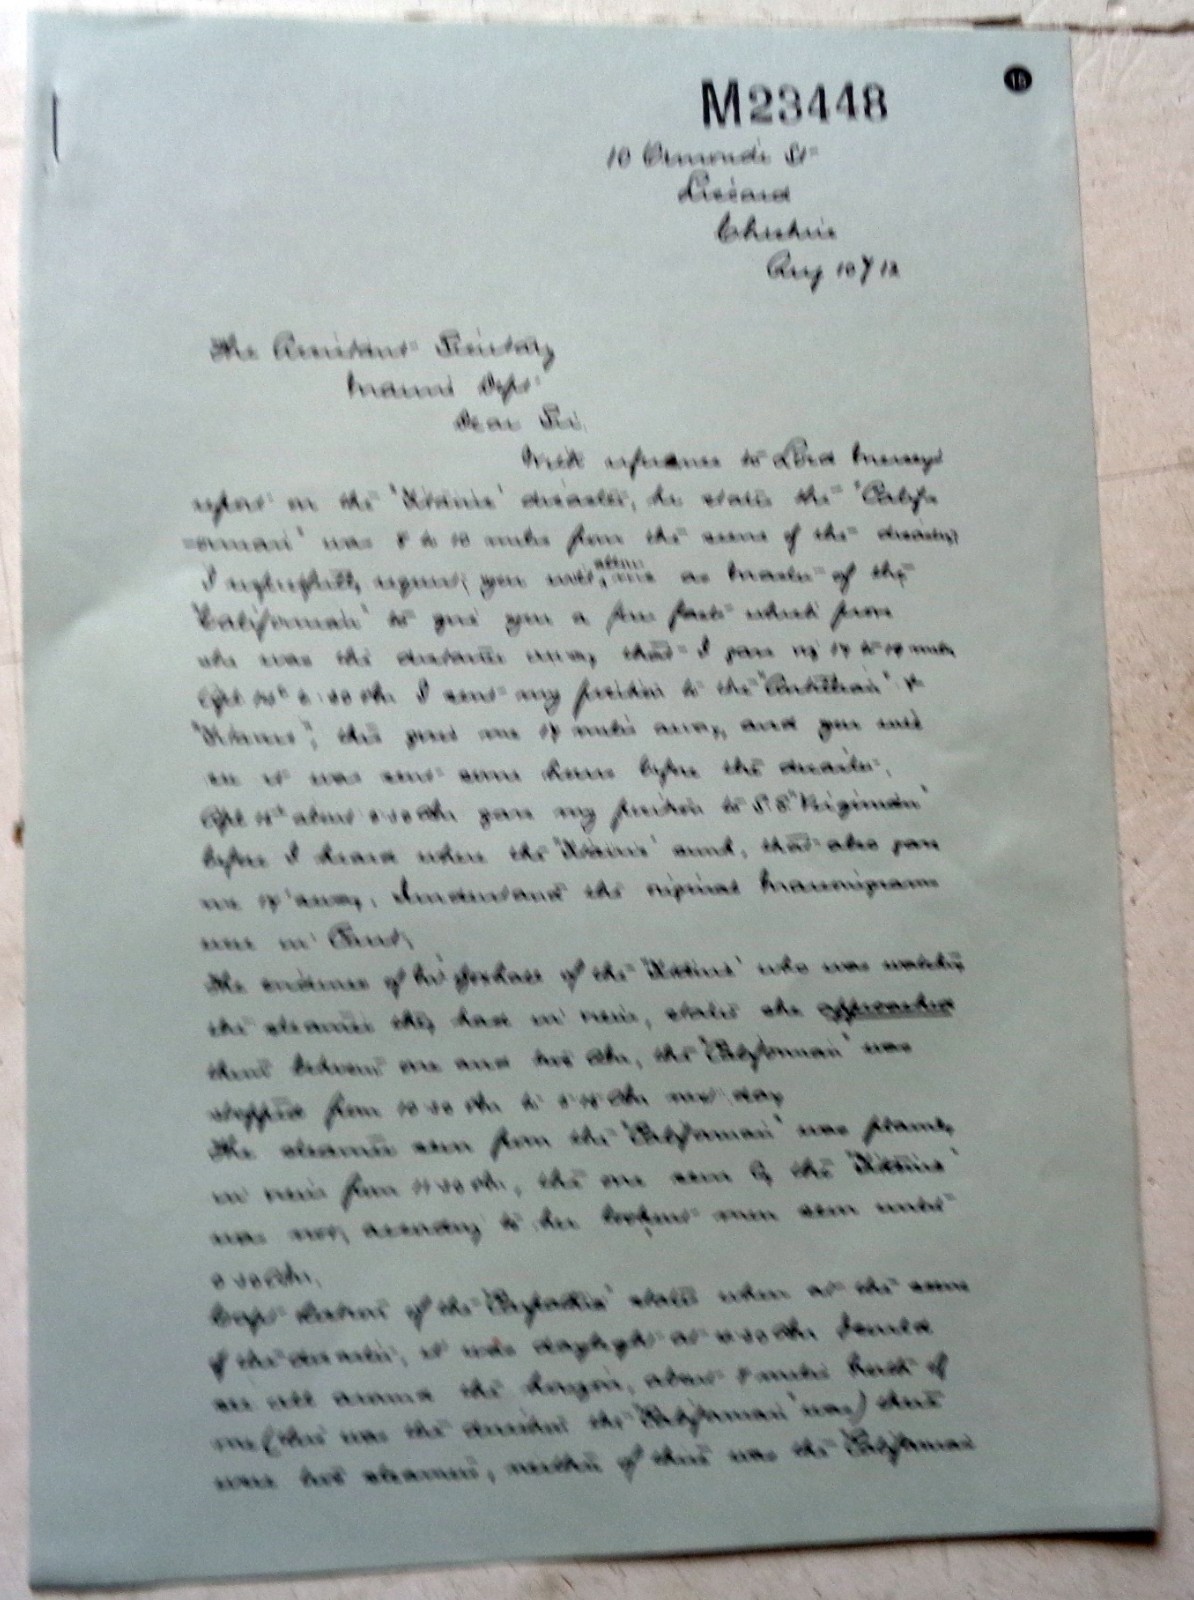 16
M23448
10 Ormonde St
Liscard
Cheshire
Aug 10/12
The Assistant Secretary
Marine Dept
Dear Sir.
With reference to Lord Mersey's
report on the 'Titanic' disaster, he states the 'Calif-
-ornian' was 8 to 10 miles from the scene of the disaster,
I respectfully request you will allow me as Master of the
'Californian' to give you a few facts which prove
she was the distance away that I gave viz 17 to 19 miles,
Apl 14th 6.30 Pm I sent my position to the "Antillian" &
"Titanic", this gives me 17 miles away, and you will
see it was sent some hours before the disaster.
Apl 15th about Am gave my position to S.S. "Virginian"
before I heard where the 'Titanic' sunk, that also gave
me 17' away. I understand the original Marconigrams
were in Court,
The evidence of Mr Boxhall of the 'Titanic' who was watching
the steamer they had in view, states she approached
them between one and two Am, the 'Californian' was
stopped from 10.30 Pm to Am next day
The steamer seen from the 'Californian' was plainly
in view from 11.30 Pm, the one seen by the 'Titanic'
was not, according to her lookout men seen until
Am.
Capt Rostron of the 'Carpathia' states when at the scene
of the disaster, it was daylight at Am I could
see all around the horizon, about 8 miles North of
me (this was the direction the 'Californian' was) there
were two steamers, neither of these was the 'Californian